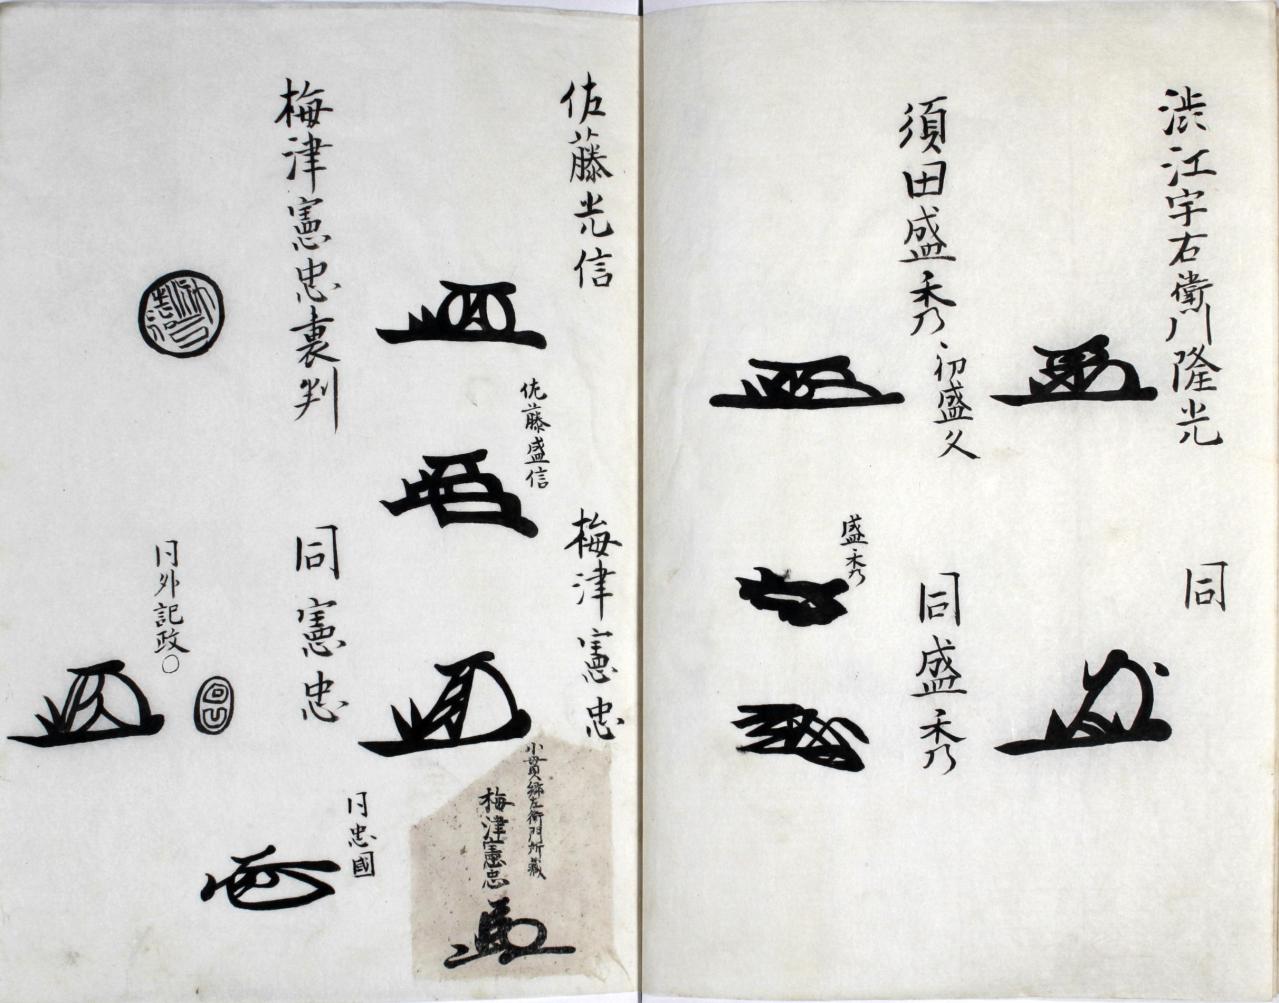 渋江宇右衛門隆光
同
須田盛秀、初盛久
盛秀
同盛秀
佐藤光信
佐藤盛信
梅津憲忠
小貫綿左衛門所蔵
梅津憲忠
梅津憲忠裏判
同憲忠
同忠國
同外記政〇